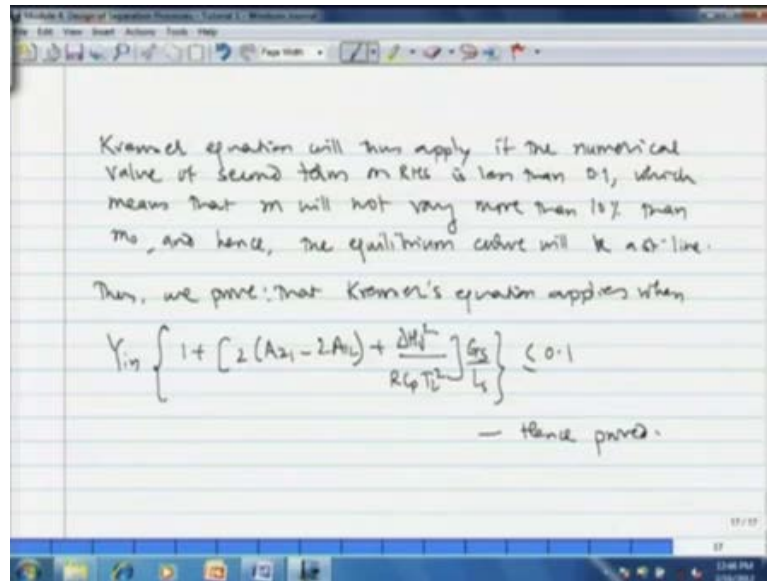 Module 4: Design of Separation Processes - Tutorial 1 - Windows Journal
File Edit View Insert Actions Tools Help
Page Width
Kremser equation will thus apply if the numerical
value of second term on RHS is less than 0.1, which
means that m will not vary more than 10% than
m₀, and hence, the equilibrium curve will be a st. line.
Thus, we prove that Kremser's equation applies when
Yin { 1 + [ 2 (A21 - 2A12) + ΔHv² / RCpTL² ] Gs / Ls } ≤ 0.1
— Hence proved.
17/17
17
12:46 PM